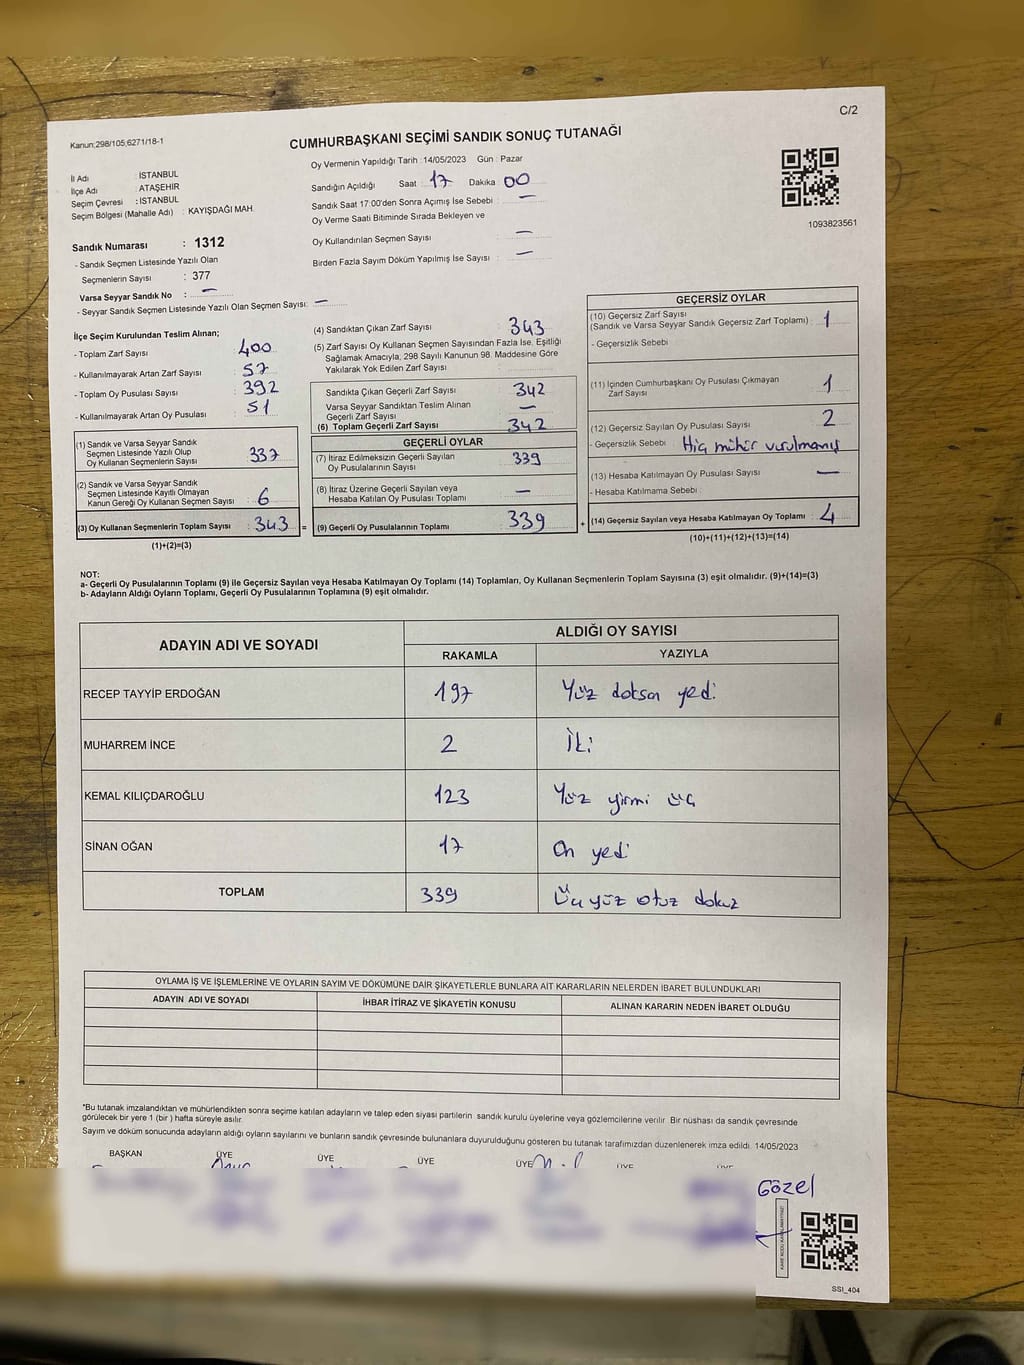 C/2
Kanun:298/105,6271/18-1
CUMHURBAŞKANI SEÇİMİ SANDIK SONUÇ TUTANAĞI
İl Adı : İSTANBUL
İlçe Adı : ATAŞEHİR
Seçim Çevresi : İSTANBUL
Seçim Bölgesi (Mahalle Adı) : KAYIŞDAĞI MAH.
Oy Vermenin Yapıldığı Tarih : 14/05/2023 Gün : Pazar
Sandığın Açıldığı Saat : 17 Dakika : 00
Sandık Saat 17:00'den Sonra Açımış İse Sebebi : —
Oy Verme Saati Bitiminde Sırada Bekleyen ve
Oy Kullandırılan Seçmen Sayısı : —
Birden Fazla Sayım Döküm Yapılmış İse Sayısı : —
1093823561
Sandık Numarası : 1312
- Sandık Seçmen Listesinde Yazılı Olan
Seçmenlerin Sayısı : 377
Varsa Seyyar Sandık No : —
- Seyyar Sandık Seçmen Listesinde Yazılı Olan Seçmen Sayısı: —
İlçe Seçim Kurulundan Teslim Alınan;
- Toplam Zarf Sayısı : 400
- Kullanılmayarak Artan Zarf Sayısı : 57
- Toplam Oy Pusulası Sayısı : 392
- Kullanılmayarak Artan Oy Pusulası : 51
(1) Sandık ve Varsa Seyyar Sandık
Seçmen Listesinde Yazılı Olup
Oy Kullanan Seçmenlerin Sayısı : 337
(2) Sandık ve Varsa Seyyar Sandık
Seçmen Listesinde Kayıtlı Olmayan
Kanun Gereği Oy Kullanan Seçmen Sayısı : 6
(3) Oy Kullanan Seçmenlerin Toplam Sayısı : 343 =
(1)+(2)=(3)
(4) Sandıktan Çıkan Zarf Sayısı : 343
(5) Zarf Sayısı Oy Kullanan Seçmen Sayısından Fazla İse, Eşitliği
Sağlamak Amacıyla, 298 Sayılı Kanunun 98. Maddesine Göre
Yakılarak Yok Edilen Zarf Sayısı :
Sandıkta Çıkan Geçerli Zarf Sayısı : 342
Varsa Seyyar Sandıktan Teslim Alınan
Geçerli Zarf Sayısı : —
(6) Toplam Geçerli Zarf Sayısı : 342
GEÇERLİ OYLAR
(7) İtiraz Edilmeksizin Geçerli Sayılan
Oy Pusulalarının Sayısı : 339
(8) İtiraz Üzerine Geçerli Sayılan veya
Hesaba Katılan Oy Pusulası Toplamı : —
(9) Geçerli Oy Pusulalarının Toplamı : 339 +
GEÇERSİZ OYLAR
(10) Geçersiz Zarf Sayısı
(Sandık ve Varsa Seyyar Sandık Geçersiz Zarf Toplamı) : 1
- Geçersizlik Sebebi :
(11) İçinden Cumhurbaşkanı Oy Pusulası Çıkmayan
Zarf Sayısı : 1
(12) Geçersiz Sayılan Oy Pusulası Sayısı : 2
- Geçersizlik Sebebi : Hiç mühür vurulmamış
(13) Hesaba Katılmayan Oy Pusulası Sayısı : —
- Hesaba Katılmama Sebebi :
(14) Geçersiz Sayılan veya Hesaba Katılmayan Oy Toplamı : 4
(10)+(11)+(12)+(13)=(14)
NOT:
a- Geçerli Oy Pusulalarının Toplamı (9) ile Geçersiz Sayılan veya Hesaba Katılmayan Oy Toplamı (14) Toplamları, Oy Kullanan Seçmenlerin Toplam Sayısına (3) eşit olmalıdır. (9)+(14)=(3)
b- Adayların Aldığı Oyların Toplamı, Geçerli Oy Pusulalarının Toplamına (9) eşit olmalıdır.
ADAYIN ADI VE SOYADI ALDIĞI OY SAYISI
RAKAMLA YAZIYLA
RECEP TAYYİP ERDOĞAN 197 Yüz doksan yedi
MUHARREM İNCE 2 İki
KEMAL KILIÇDAROĞLU 123 Yüz yirmi üç
SİNAN OĞAN 17 On yedi
TOPLAM 339 Üç yüz otuz dokuz
OYLAMA İŞ VE İŞLEMLERİNE VE OYLARIN SAYIM VE DÖKÜMÜNE DAİR ŞİKAYETLERLE BUNLARA AİT KARARLARIN NELERDEN İBARET BULUNDUKLARI
ADAYIN ADI VE SOYADI İHBAR İTİRAZ VE ŞİKAYETİN KONUSU ALINAN KARARIN NEDEN İBARET OLDUĞU
*Bu tutanak imzalandıktan ve mühürlendikten sonra seçime katılan adayların ve talep eden siyasi partilerin sandık kurulu üyelerine veya gözlemcilerine verilir. Bir nüshası da sandık çevresinde
görülecek bir yere 1 (bir ) hafta süreyle asılır.
Sayım ve döküm sonucunda adayların aldığı oyların sayılarını ve bunların sandık çevresinde bulunanlara duyurulduğunu gösteren bu tutanak tarafımızdan düzenlenerek imza edildi. 14/05/2023
BAŞKAN ÜYE ÜYE ÜYE ÜYE ÜYE ÜYE
Gözel
SSI_404